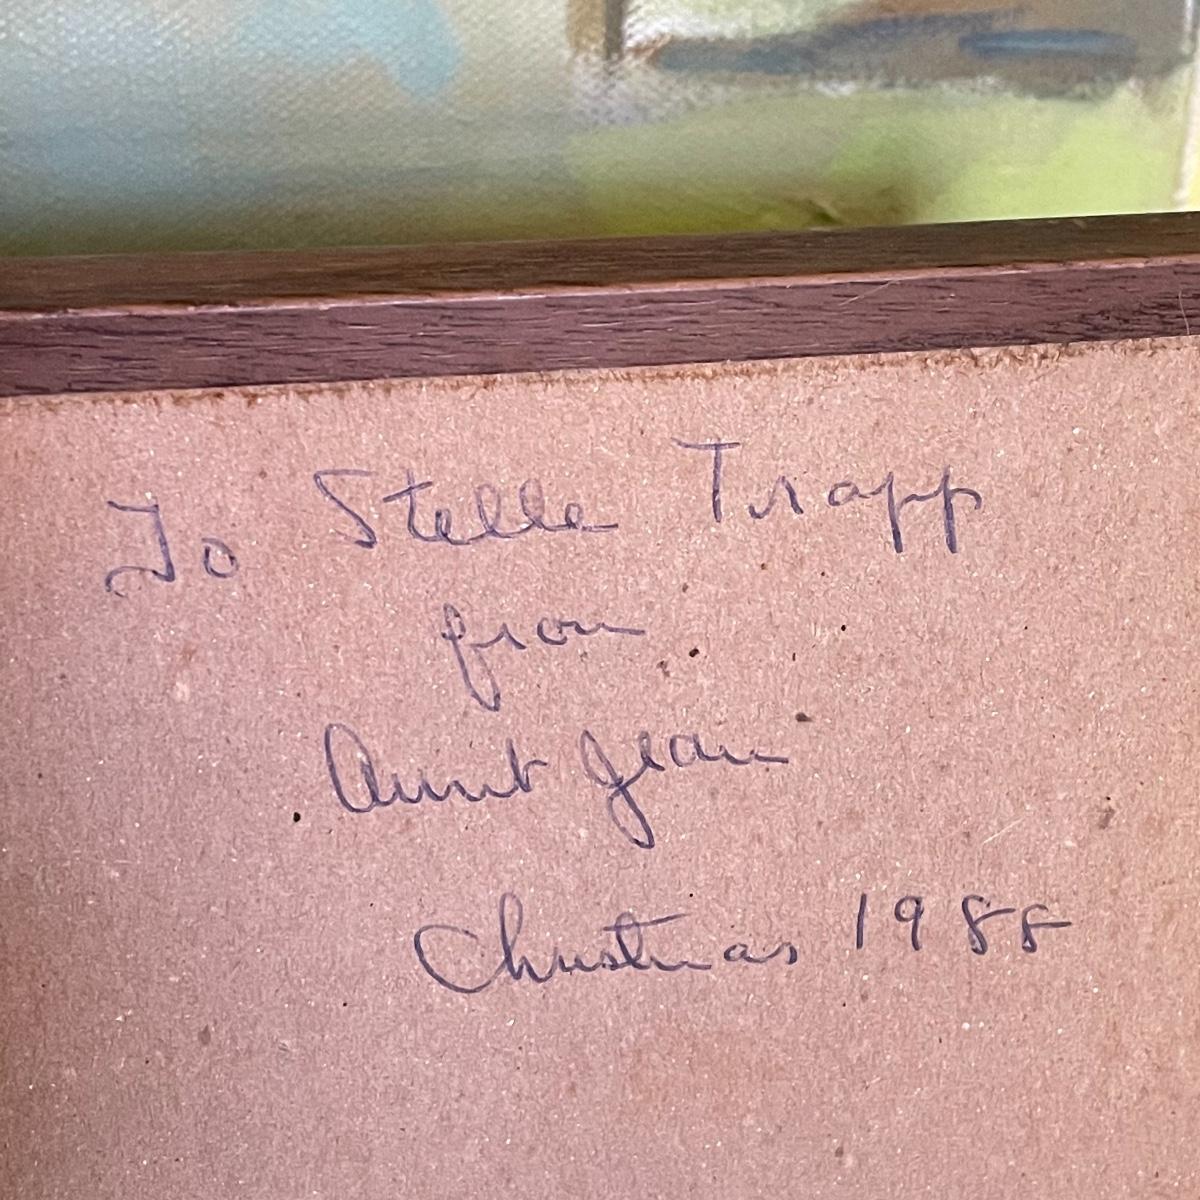 To Stella Trapp
from
Aunt Jean
Christmas 1988